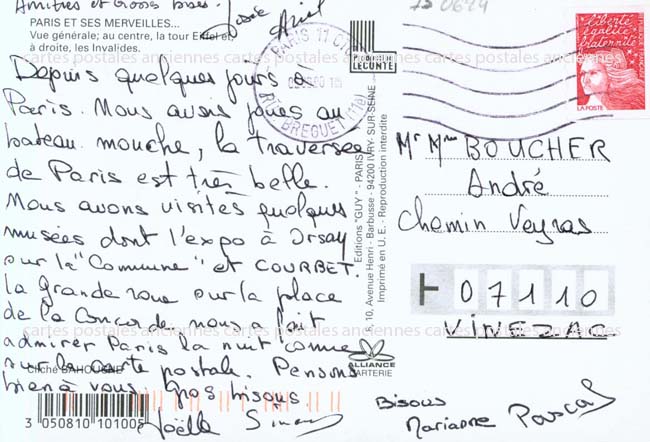 Amitiés et Gross bises.
PARIS ET SES MERVEILLES...
Vue générale; au centre, la tour Eiffel et,
à droite, les Invalides.
Depuis quelques jours à
Paris. Nous avons joués au
bateau mouche, la traversée
de Paris est très belle.
Nous avons visités quelques
musées dont l'expo à Orsay
sur la "Commune" et COURBET.
la grande roue sur la place
de la Concorde, nous fait
admirer Paris la nuit comme
sur la carte postale. Pensons
bien à vous. Gros bisous
Joëlle Simon
Cliché BAHOUGNE
3 050810 101005
PARIS 11 CTC
RUE BREGUET (11e)
LECONTE
Editions "GUY" - PARIS
10, Avenue Henri - Barbusse - 94200 IVRY-SUR-SEINE
Imprimé en U.E. - Reproduction interdite
ALLIANCE
CARTERIE
liberté
égalité
fraternité
LA POSTE
Mr Mme BOUCHER
André
Chemin Veyras
07110
VINEZAC
Bisous
Marianne Pascal
cartes postales anciennes cartes postales anciennes cartes postales anciennes
cartes postales anciennes cartes postales anciennes cartes postales anciennes